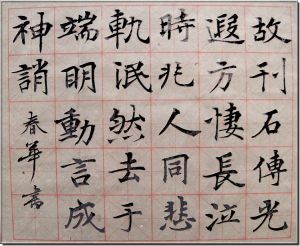 故刊石傳光
遐方悽長泣
時兆人同悲
軌泯然去于
端明動言成
神誚
春華書